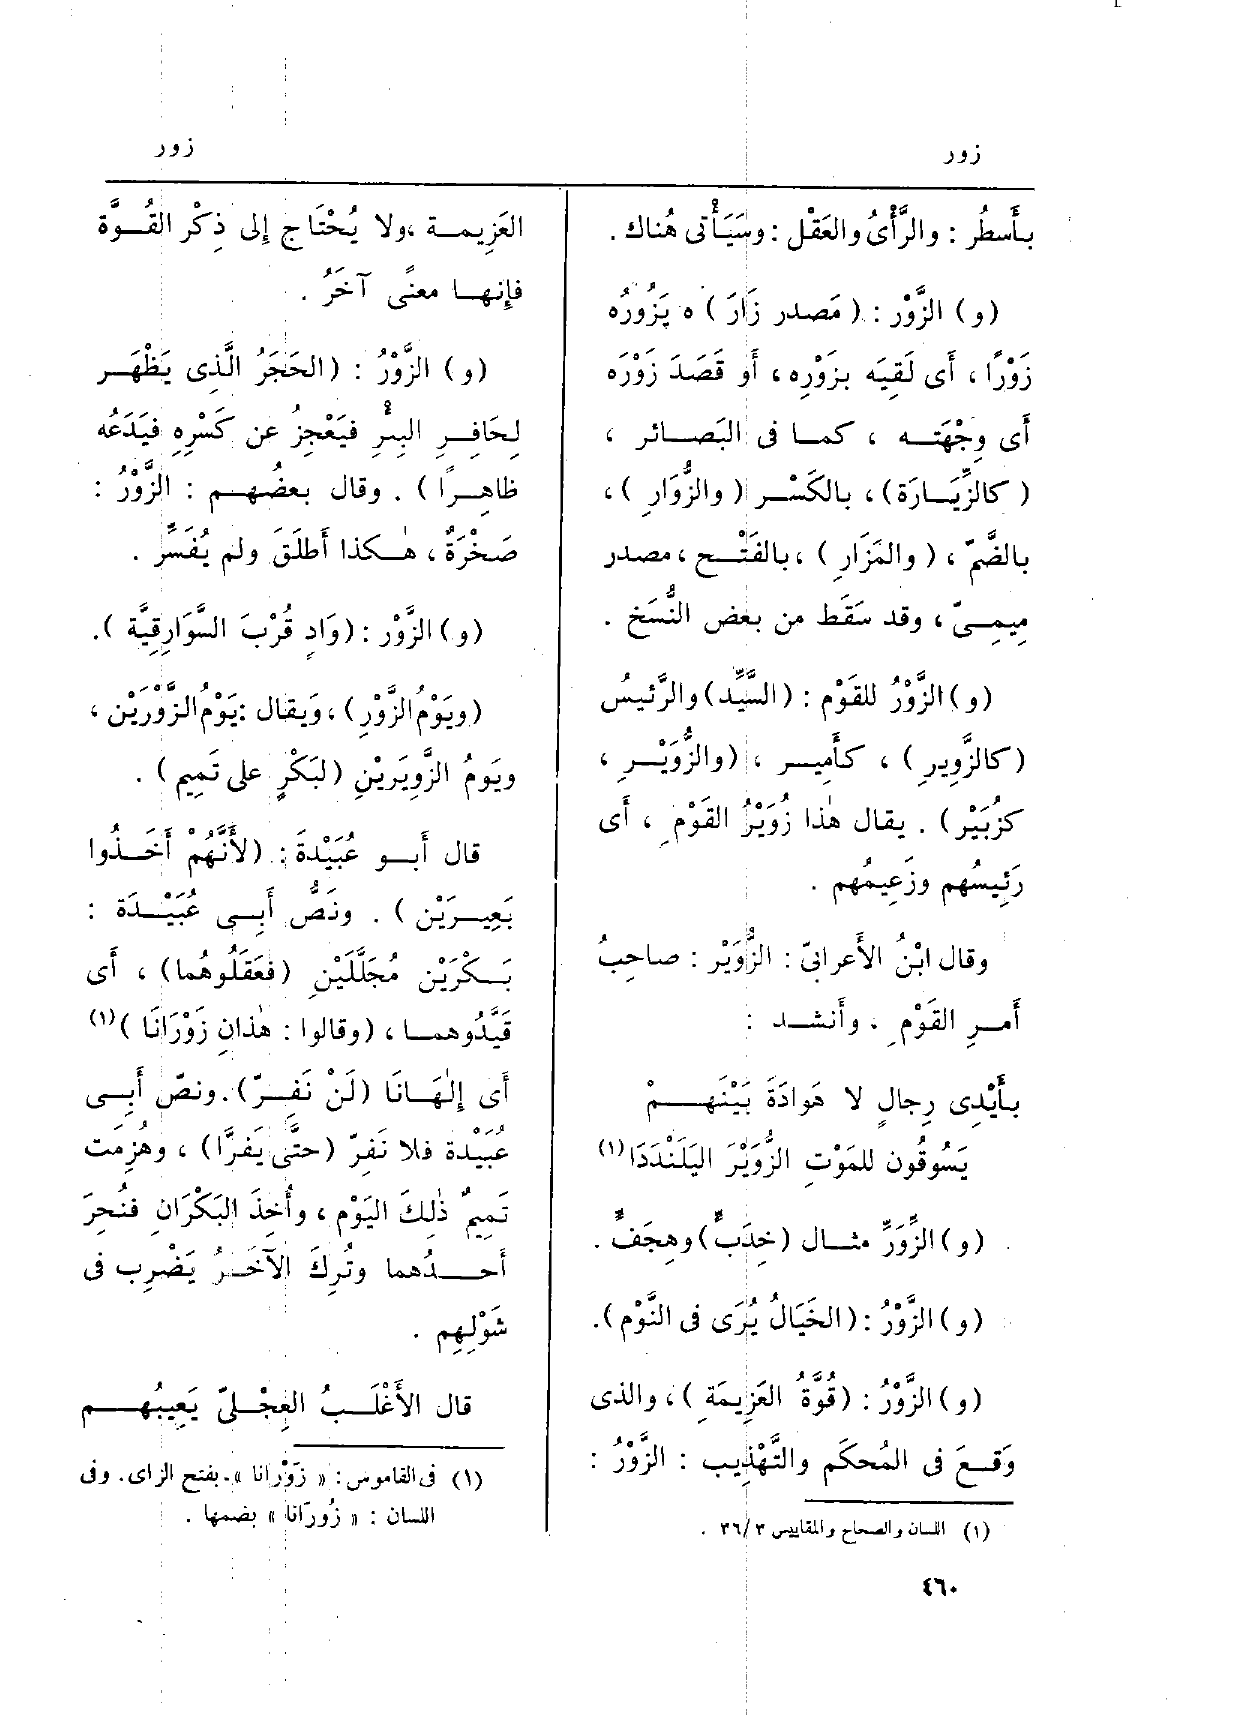 زور
زور
بأَسطُر : والرَّأْىُ والعَقْل : وسَيَأْتى هُناك .
(و) الزَّوْر : (مَصدر زَارَ) ه يَزُورُه
زَوْرًا ، أَى لَقِيَه بزَوْرِه ، أَو قَصَدَ زَوْرَه
أَى وِجْهَتَه ، كما فى البَصائر ،
(كالزِّيَارَة) ، بالكَسْر (والزُّوَارِ) ،
بالضَّمّ ، (والمَزَارِ) ، بالفَتْح ، مصدر
مِيمىّ ، وقد سَقَط من بعض النُّسَخ .
(و) الزَّوْرُ للقَوْم : (السَّيِّد) والرَّئيسُ
(كالزَّوِيرِ) ، كأَمِير ، (والزُّوَيْرِ ،
كزُبَيْر) . يقال هٰذا زُوَيْرُ القَوْمِ ، أَى
رَئِيسُهم وزَعِيمُهم .
وقال ابْنُ الأَعرابىّ : الزُّوَيْر : صاحِبُ
أَمرِ القَوْمِ . وأَنشد :
بأَيْدِى رِجالٍ لا هَوادَةَ بَيْنَهمْ
يَسُوقُون للمَوْتِ الزُّوَيْرَ اليَلَنْدَدَا (١)
(و) الزِّوَرُّ مثال (خِدَبٍّ) وهِجَفٍّ .
(و) الزَّوْرُ : (الخَيَالُ يُرَى فى النَّوْم) .
(و) الزَّوْرُ : (قُوَّةُ العَزِيمَةِ) ، والذى
وَقع فى المُحكم والتَّهْذِيب : الزَّوْرُ :
(١) اللسان والصحاح والمقاييس ٣٦/٣ .
العَزِيمة ، ولا يُحْتَاج إِلى ذِكْر القُوَّة
فإِنها معنًى آخَرُ .
(و) الزَّوْرُ : (الحَجَرُ الَّذِى يَظْهَر
لحَافِرِ البِئرِ فيَعْجِزُ عن كَسْرِه فيَدَعُه
ظاهِرًا) . وقال بعضُهم : الزَّوْرُ :
صَخْرَةٌ ، هٰكذا أَطلَقَ ولم يُفَسَّر .
(و) الزَّوْر : (وَادٍ قُرْبَ السَّوَارِقِيَّة) .
(ويَوْمُ الزَّوْرِ) ، وَيقال : يَوْمُ الزَّوْرَيْن ،
ويَومُ الزَّوِيرَيْنِ (لبَكْرٍ على تَمِيم) .
قال أَبو عُبَيْدَةَ : (لأَنَّهُمْ أَخَذُوا
بَعِيرَيْن) . ونَصُّ أَبِى عُبَيْدَة :
بَكْرَيْن مُجَلَّلَيْنِ (فعَقَلُوهُما) ، أَى
قَيَّدُوهما ، (وقالوا : هٰذانِ زَوْرَانَا) (١)
أَى إِلٰهَانَا (لَنْ نَفِرّ) . ونصّ أَبِى
عُبَيْدة فلا نَفِرّ (حتَّى يَفِرَّا) ، وهُزِمَت
تَمِيمٌ ذٰلِكَ اليَوْم ، وأُخِذَ البَكْرَانِ فنُحِرَ
أَحدُهما وتُرِكَ الآخَرُ يَضْرِب فى
شَوْلِهِم .
قال الأَغْلَبُ العِجْلىّ يَعِيبُهم
(١) فى القاموس : « زَوْرانا » . بفتح الزاى . وفى
اللسان : « زُورَانا » بضمها .
٤٦٠